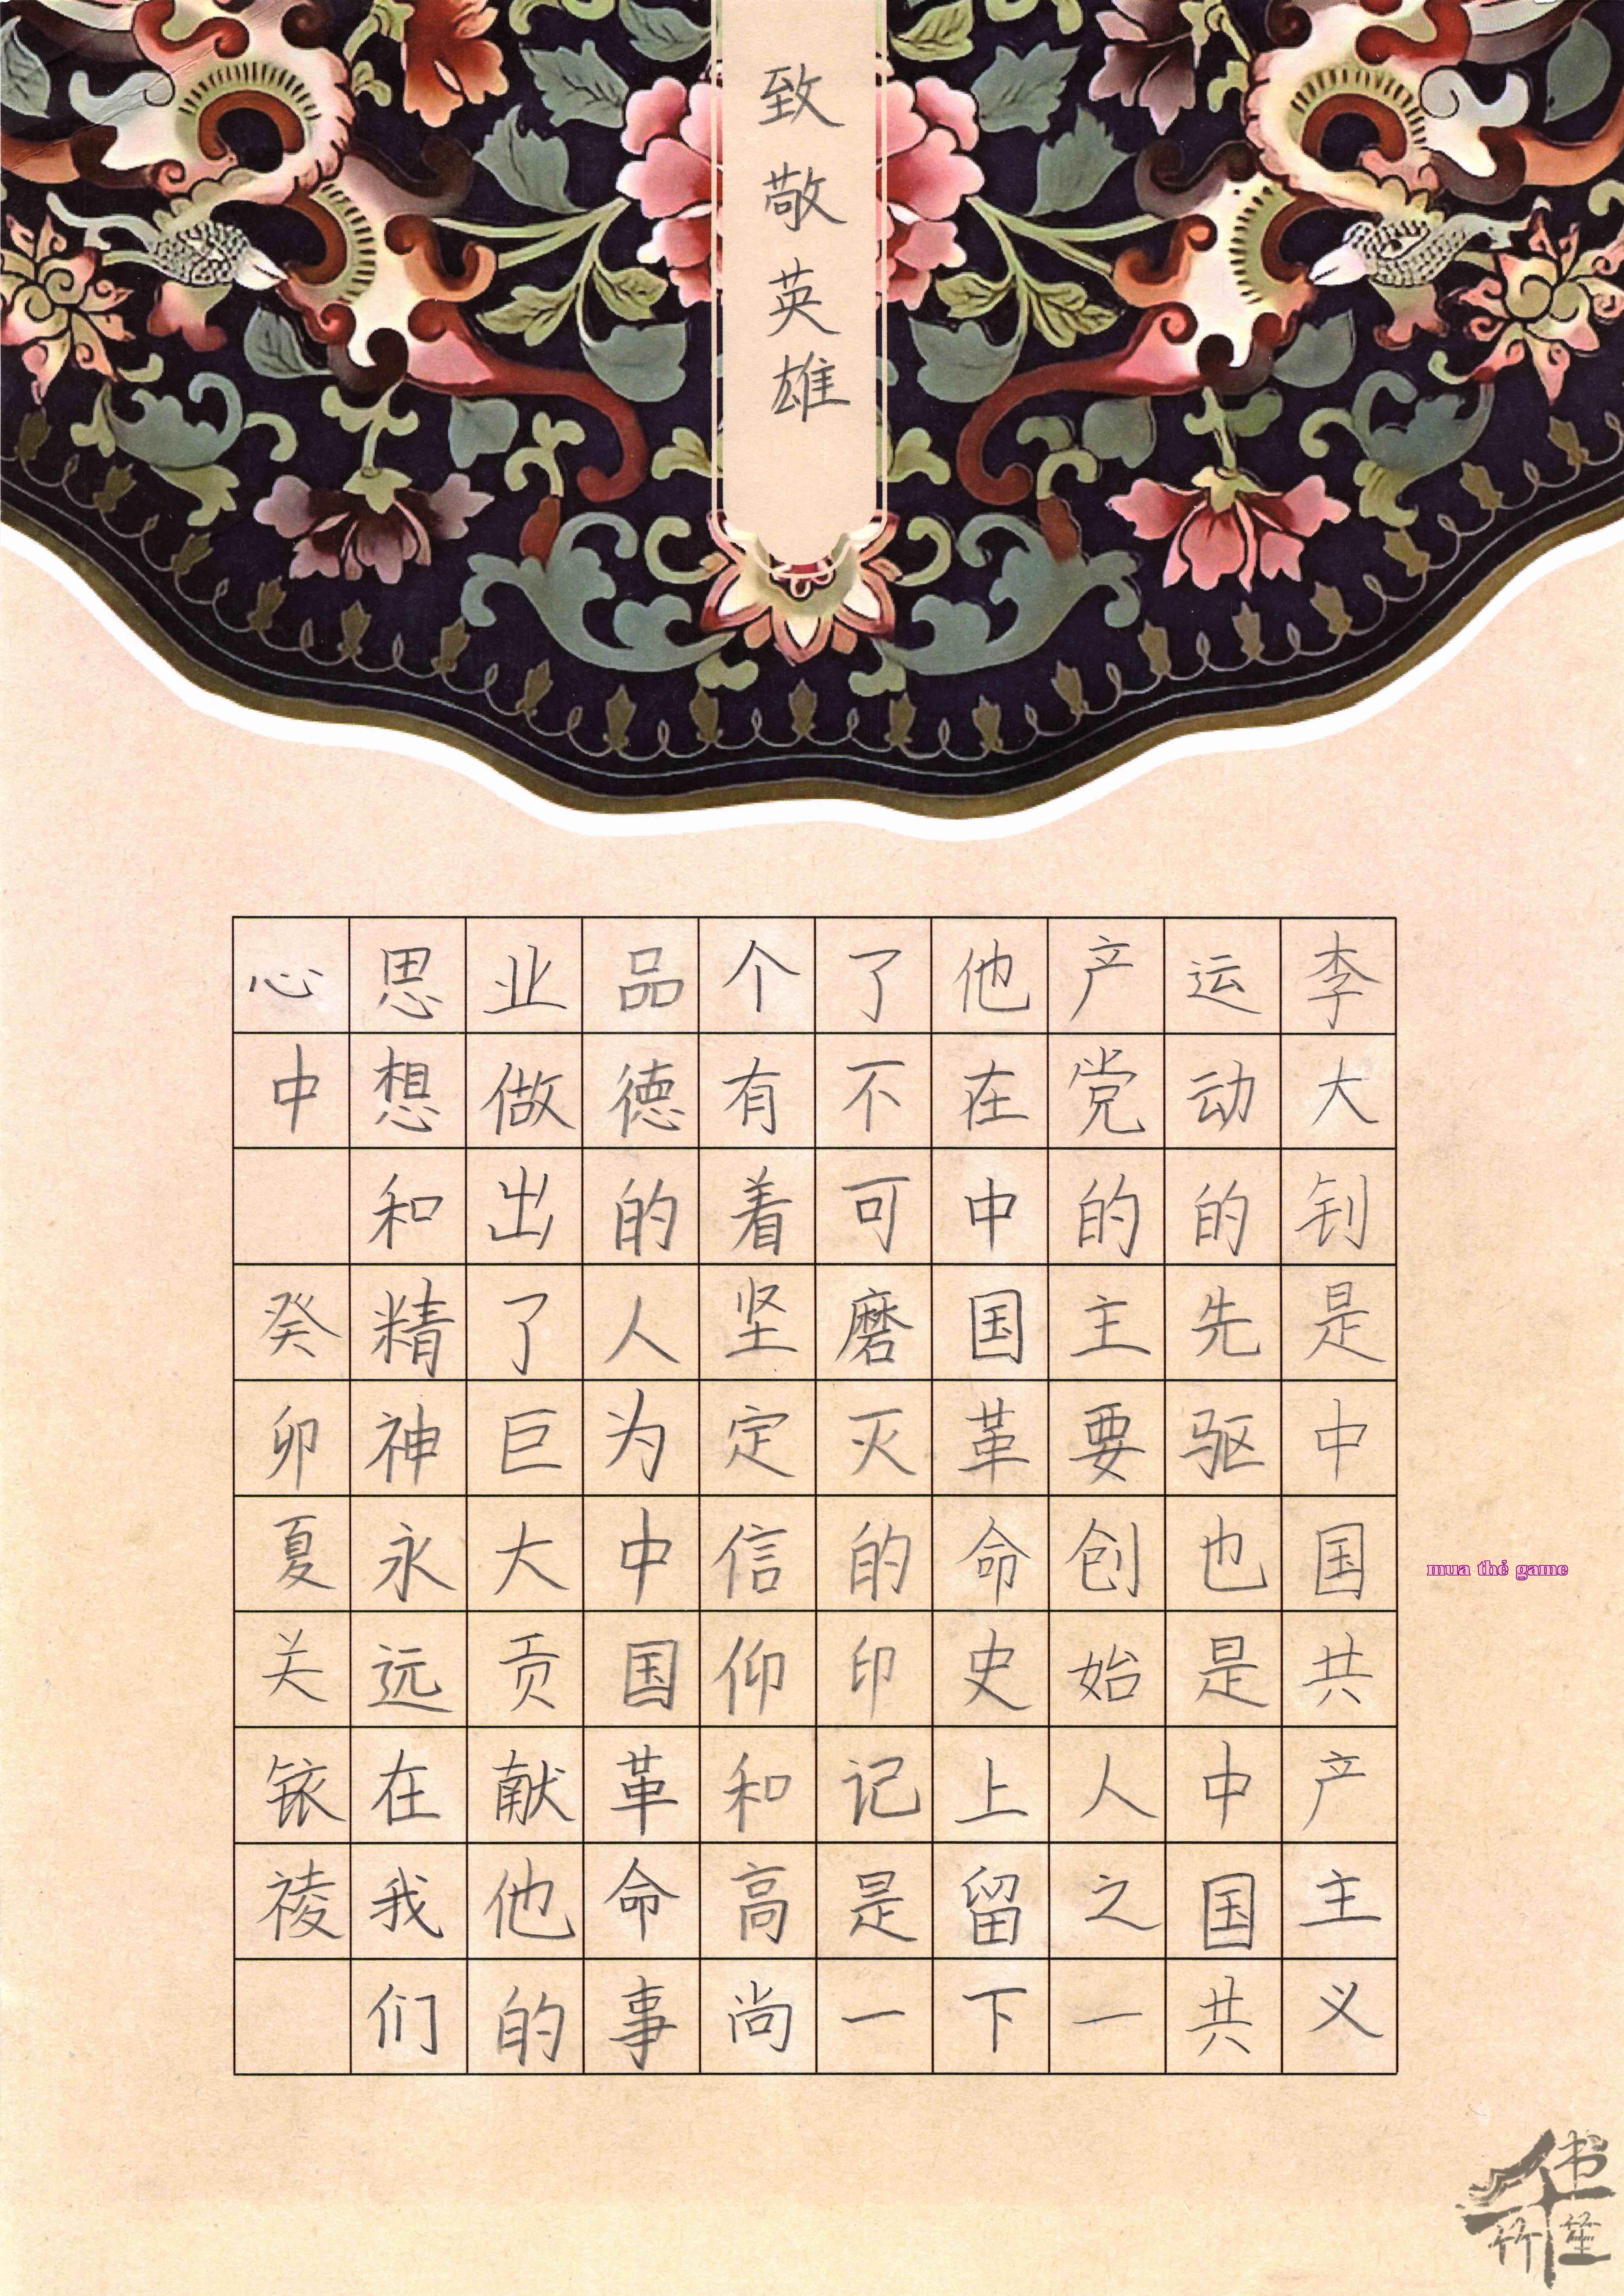 致敬英雄
李大钊是中国共产主义
运动的先驱也是中国共
产党的主要创始人之一
他在中国革命史上留下
了不可磨灭的印记是一
个有着坚定信仰和高尚
品德的人为中国革命事
业做出了巨大贡献他的
思想和精神永远在我们
心中
癸卯夏关铱祾
mua thẻ game